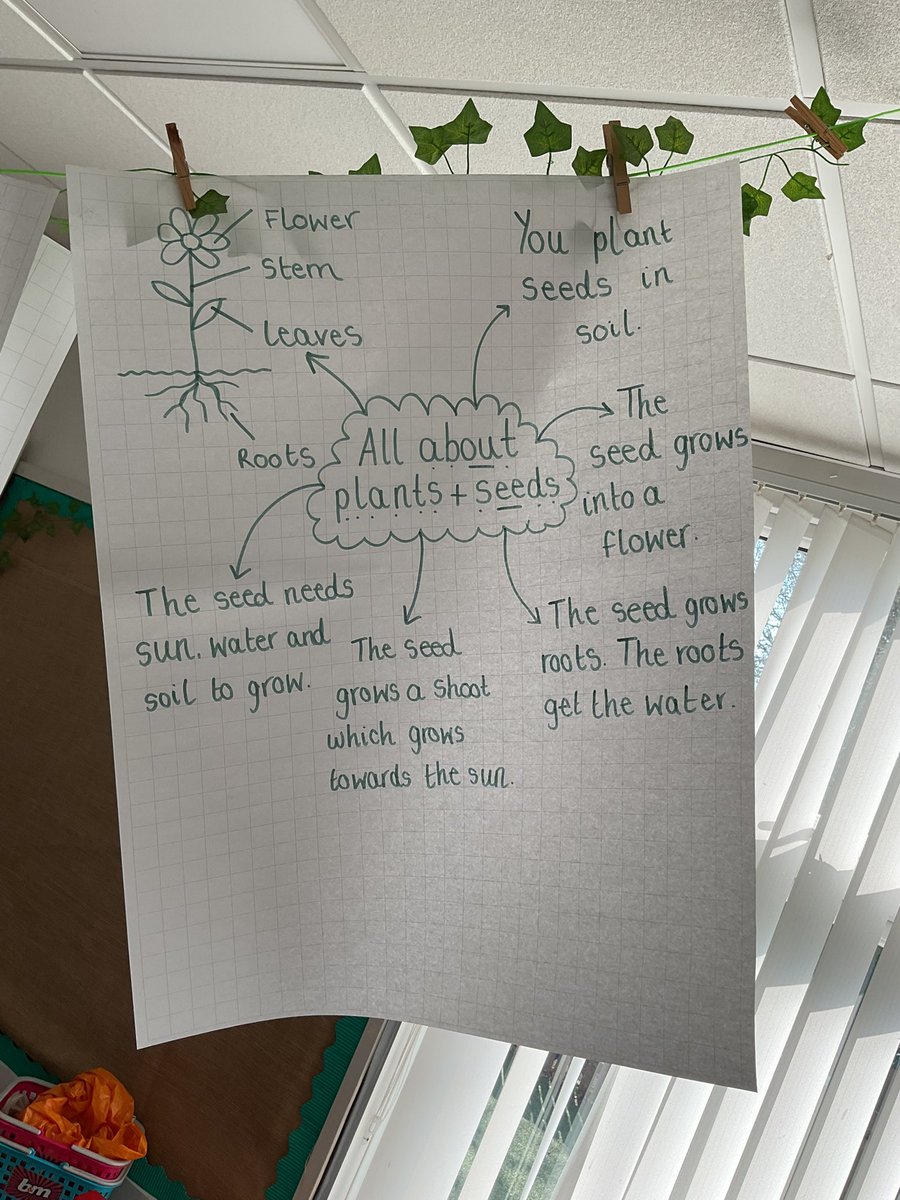 Flower
Stem
leaves
Roots
You plant
seeds in
soil.
All about
plants + seeds
The
seed grows
into a
flower.
The seed needs
sun, water and
soil to grow.
The seed
grows a shoot
which grows
towards the sun.
The seed grows
roots. The roots
get the water.
bm